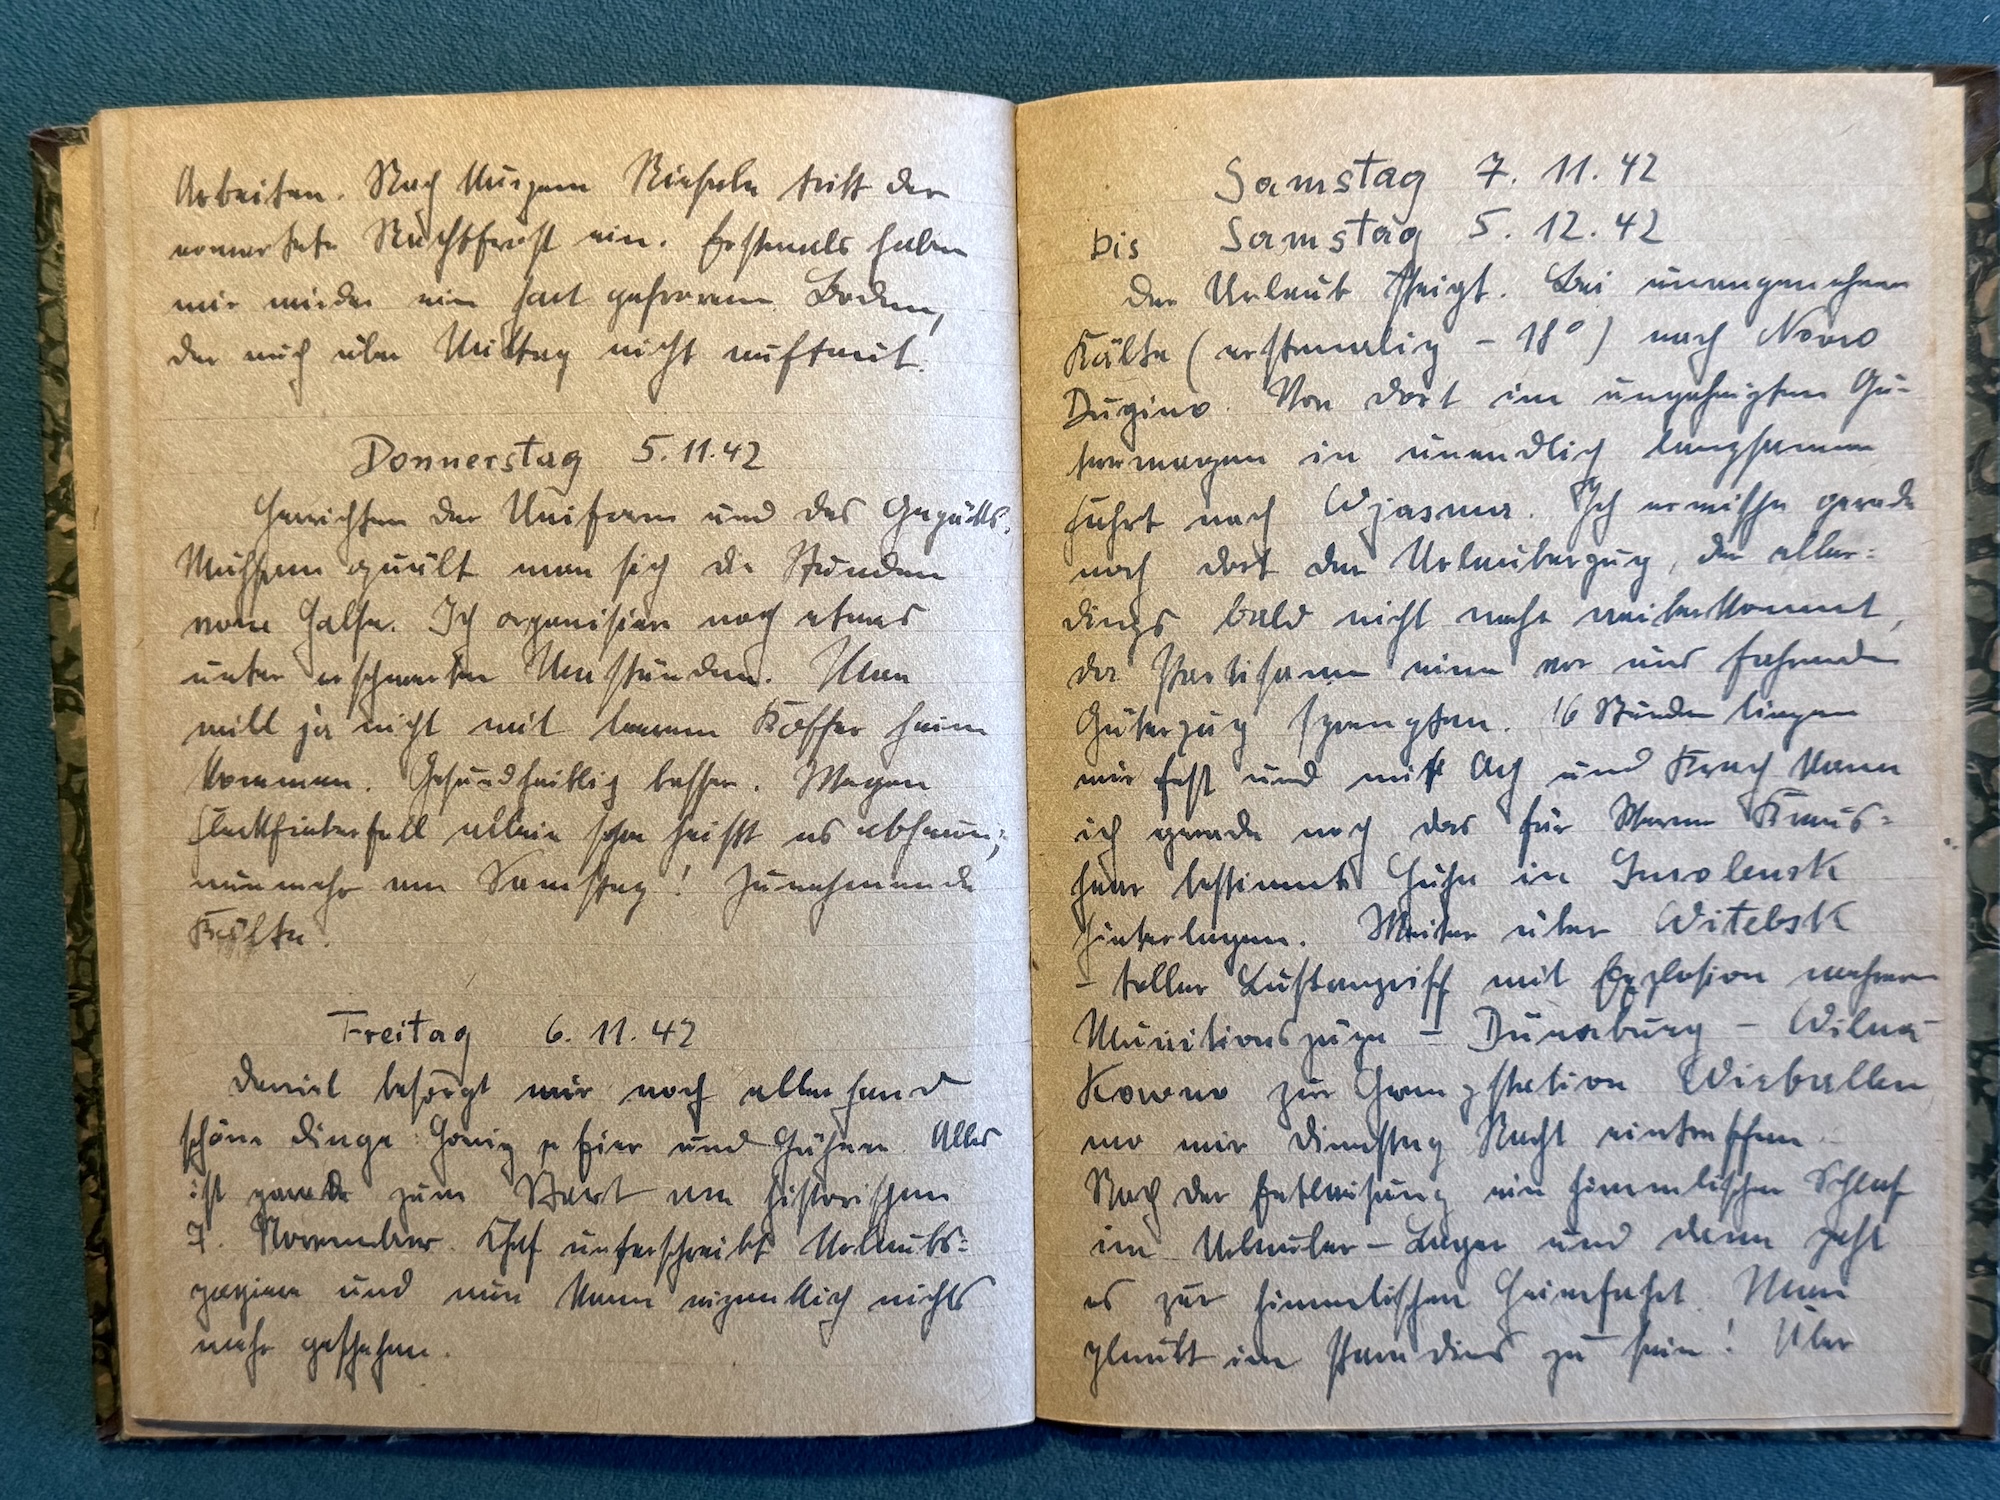 Arbeiten. Nach kurzem Rieseln tritt der
erwartete Nachtfrost ein. Erstmals haben
wir wieder ein hart gefrorenen Boden,
der auch über Mittag nicht auftaut.
Donnerstag 5.11.42
Herrichten der Uniform und des Gepäcks.
Mühsam quält man sich die Stunden
vom Halse. Ich organisiere noch etwas
unter erschwerten Umständen. Man
will ja nicht mit leerem Koffer heim
kommen. Gesundheitlich besser. Wegen
Fleckfieberfall allein schon heißt es abhauen;
nunmehr am Samstag! Zunehmende
Kälte.
Freitag 6.11.42
Daniel besorgt mir noch allerhand
schöne Dinge: Honig, Eier und Hühner. Alles
ist gerade zum Start am historischen
7. November. Chef unterschreibt Urlaubs=
papiere und nun kann eigentlich nichts
mehr geschehen.
Samstag 7.11.42
bis Samstag 5.12.42
Der Urlaub steigt. Bei unangenehmer
Kälte (erstmalig - 18°) nach Nowo
Dugino. Von dort im ungeheizten Gü-
terwagen in unendlich langsamer
Fahrt nach Wjasma. Ich erwische gerade
noch dort den Urlauberzug, der aller=
dings bald nicht mehr weiterkommt,
da Partisanen einen vor uns fahrenden
Güterzug sprengten. 16 Stunden liegen
wir fest und mit Ach und Krach kann
ich gerade noch das für
bestimmte Huhn in Smolensk
hinterlegen. Weiter über Witebsk
- toller Luftangriff mit Explosion mehrerer
Munitionszüge - Dünaburg - Wilna -
Kowno zur Grenzstation Wirballen
wo wir Dienstag Nacht eintreffen.
Nach der Entlausung ein himmlischer Schlaf
im Urlauber-Lager und dann geht
es zur himmlischen Heimfahrt. Man
glaubt im Paradies zu sein! Über